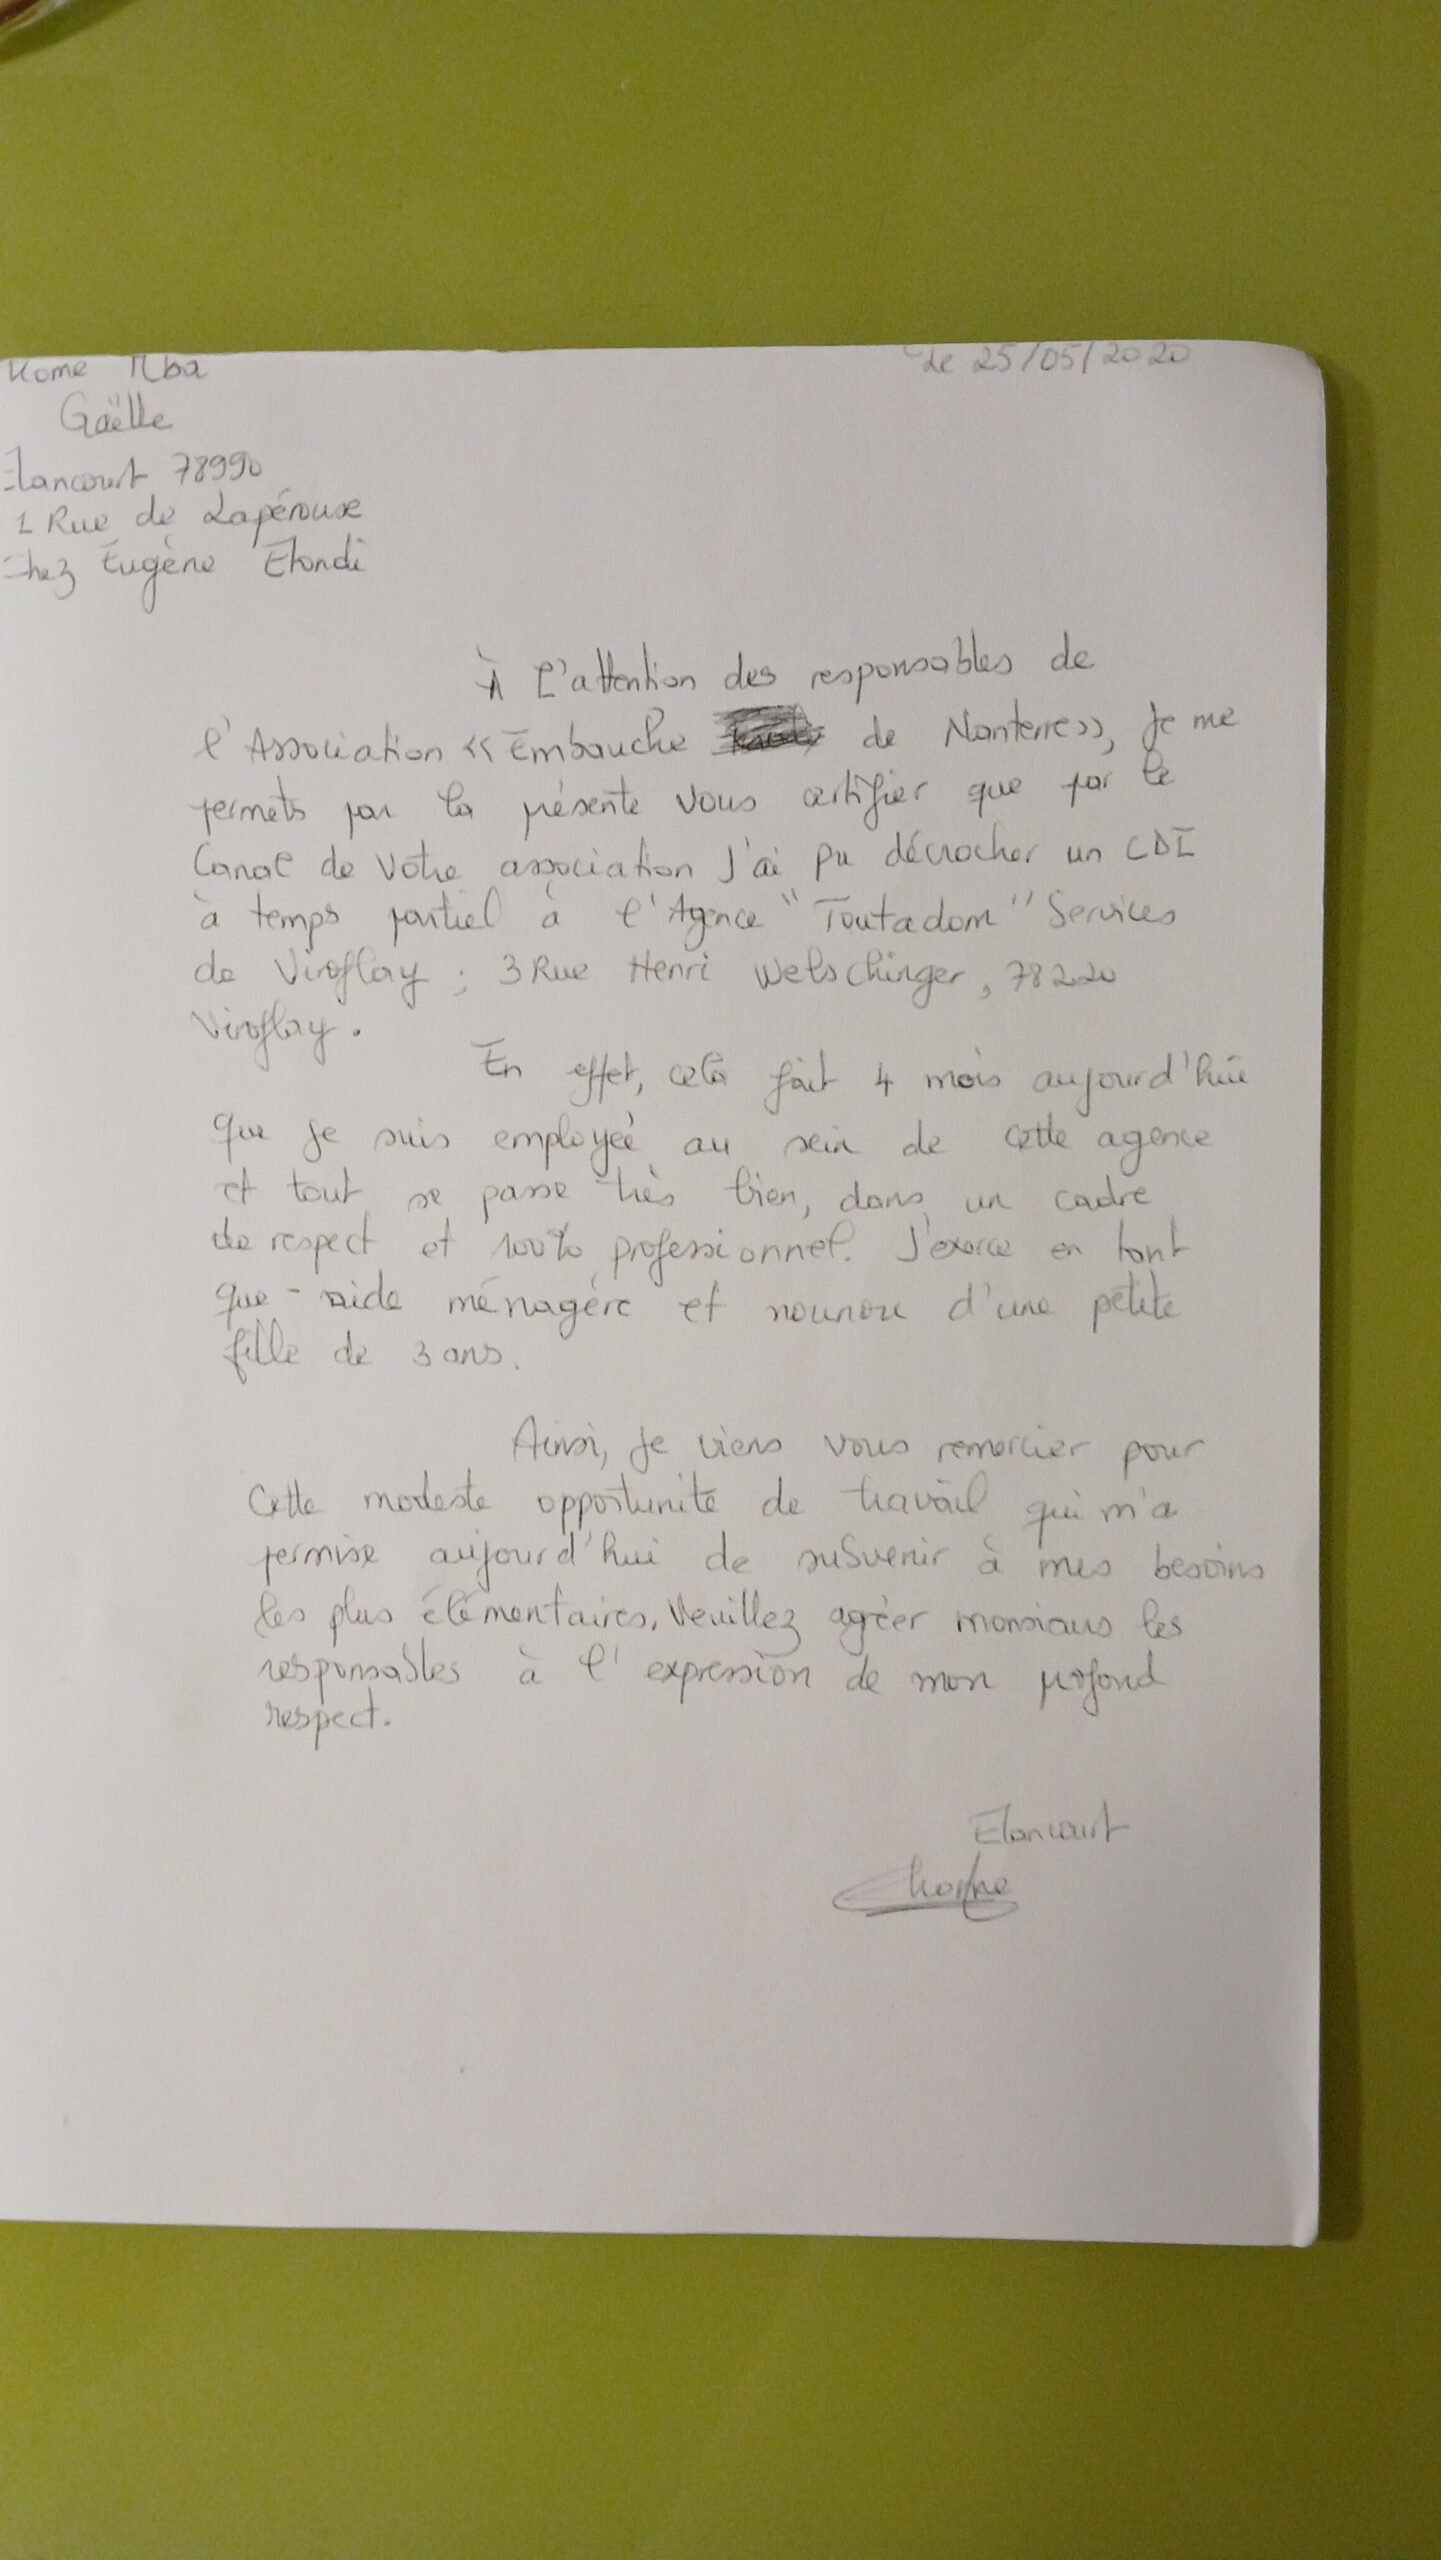 Kome Mba
Le 25/05/2020
Gaëlle
Elancourt 78990
1 Rue de Lapérouse
Chez Eugène Etondi
À L'attention des responsables de
l'Association « Embauche de Nanterre », Je me
permets par la présente vous certifier que par le
Canal de Votre association J'ai pu décrocher un CDI
à temps partiel à l'Agence "Toutadom" Services
de Viroflay ; 3 Rue Henri Welschinger, 78220
Viroflay.
En effet, cela fait 4 mois aujourd'hui
que je suis employée au sein de cette agence
et tout se passe très bien, dans un cadre
de respect et 100% professionnel. J'exerce en tant
que - aide ménagère et nounou d'une petite
fille de 3 ans.
Ainsi, je viens vous remercier pour
Cette modeste opportunité de travail qui m'a
permise aujourd'hui de subvenir à mes besoins
les plus élémentaires. Veuillez agréer monsieurs les
responsables à l'expression de mon profond
respect.
Elancourt